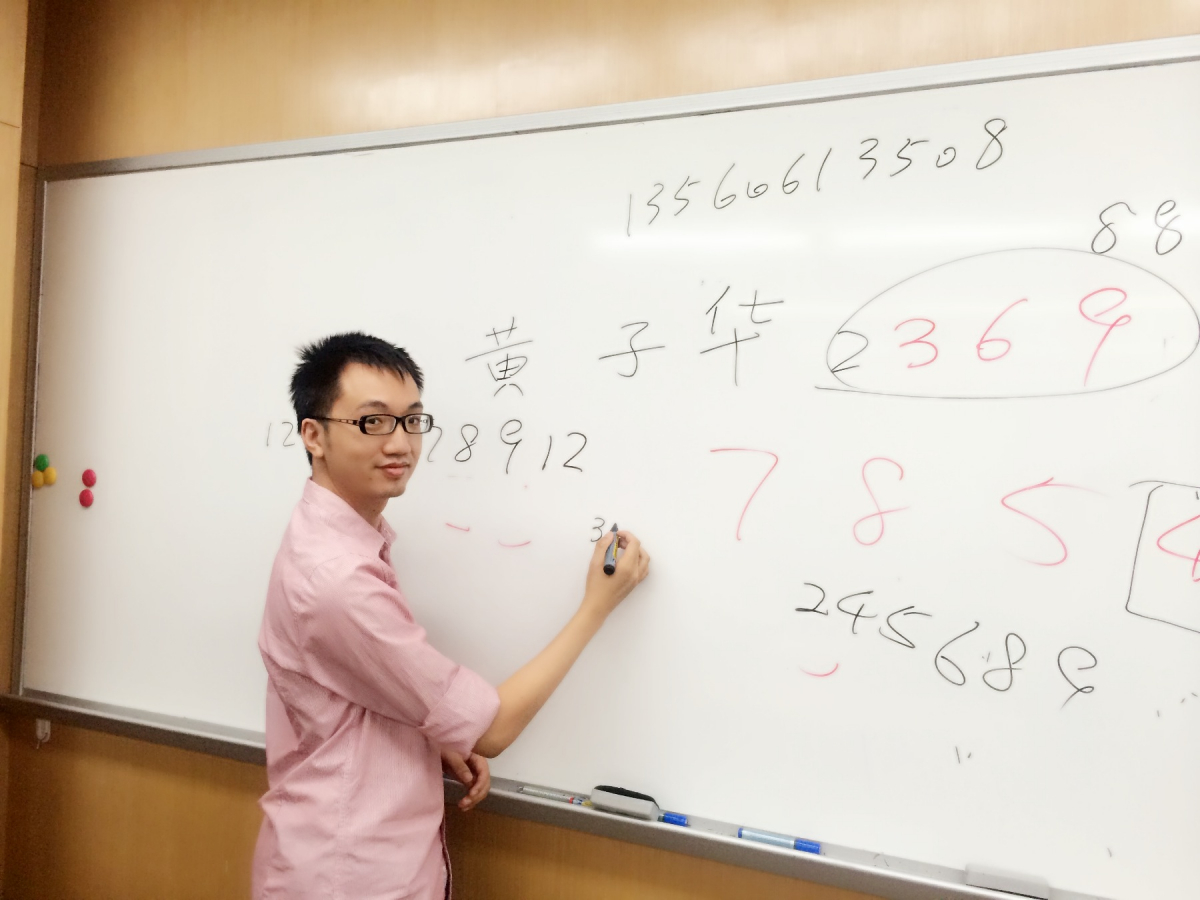 13560613508
88
黄子华 2369
12 78912
7 8 5 4
3
245689